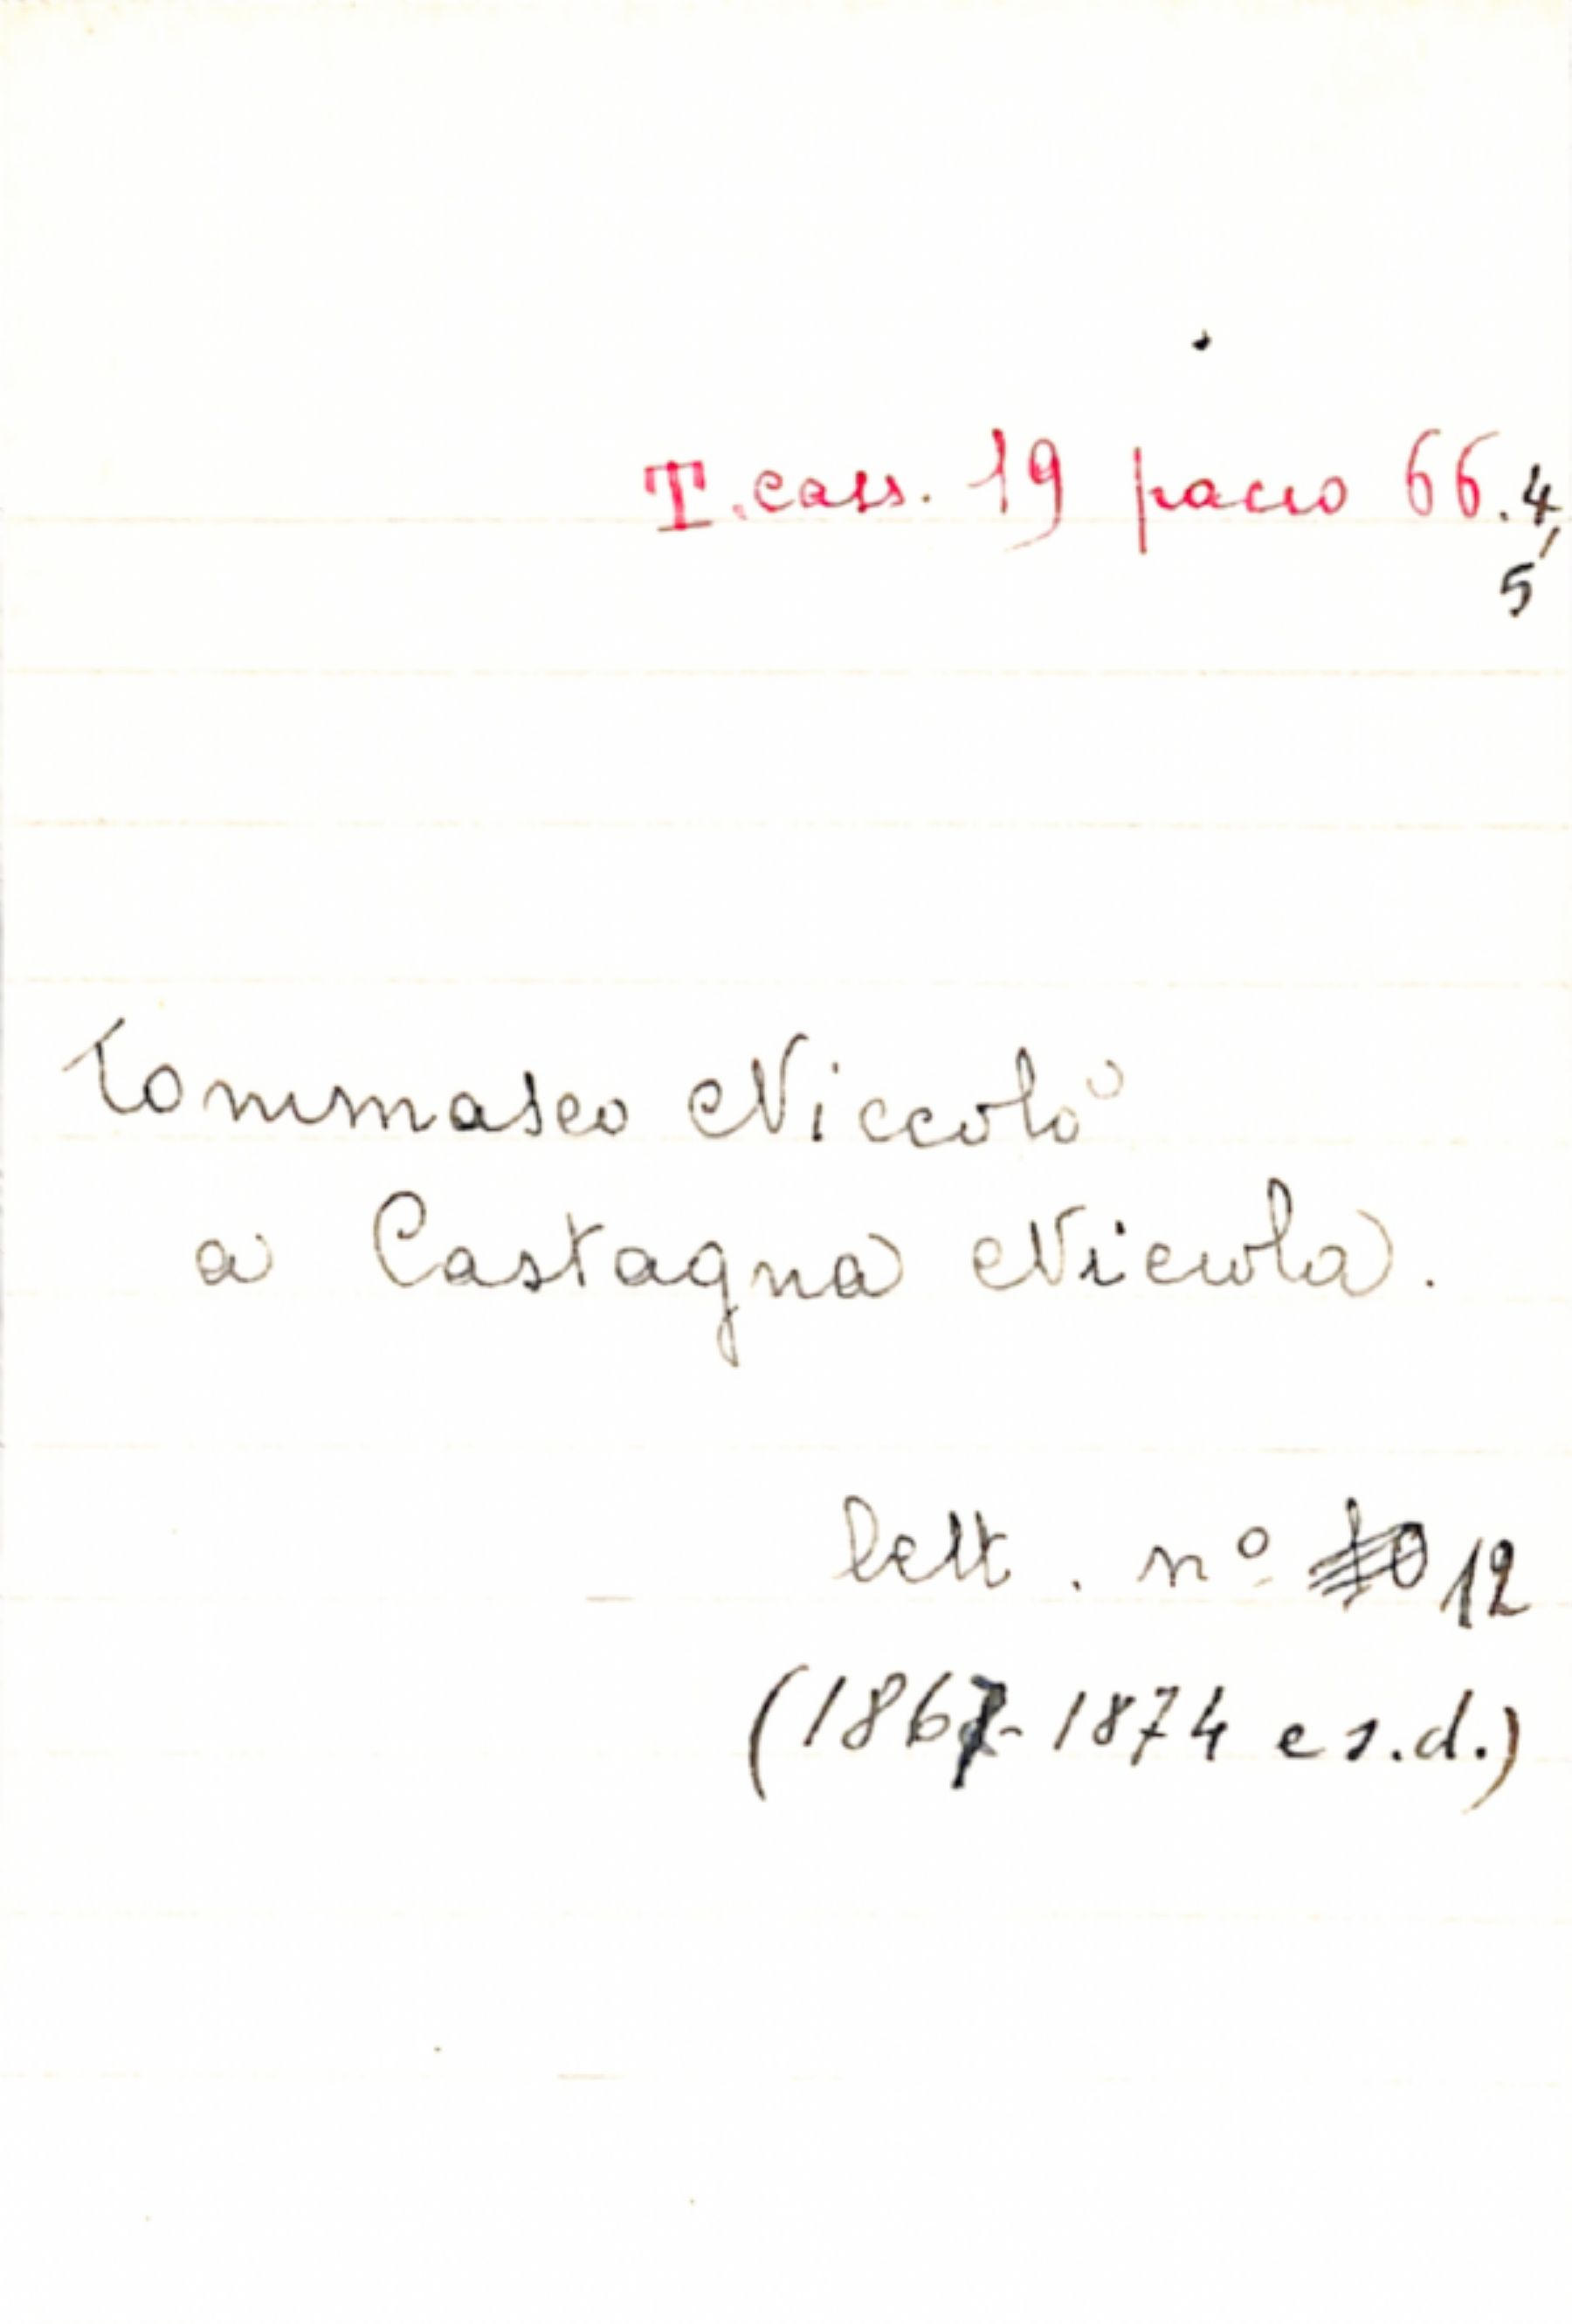 T. cass. 19 pacco 66.4,
5
Tommaseo Niccolò
a Castagna Nicola.
Lett. nº 12
(1867-1874 e s.d.)